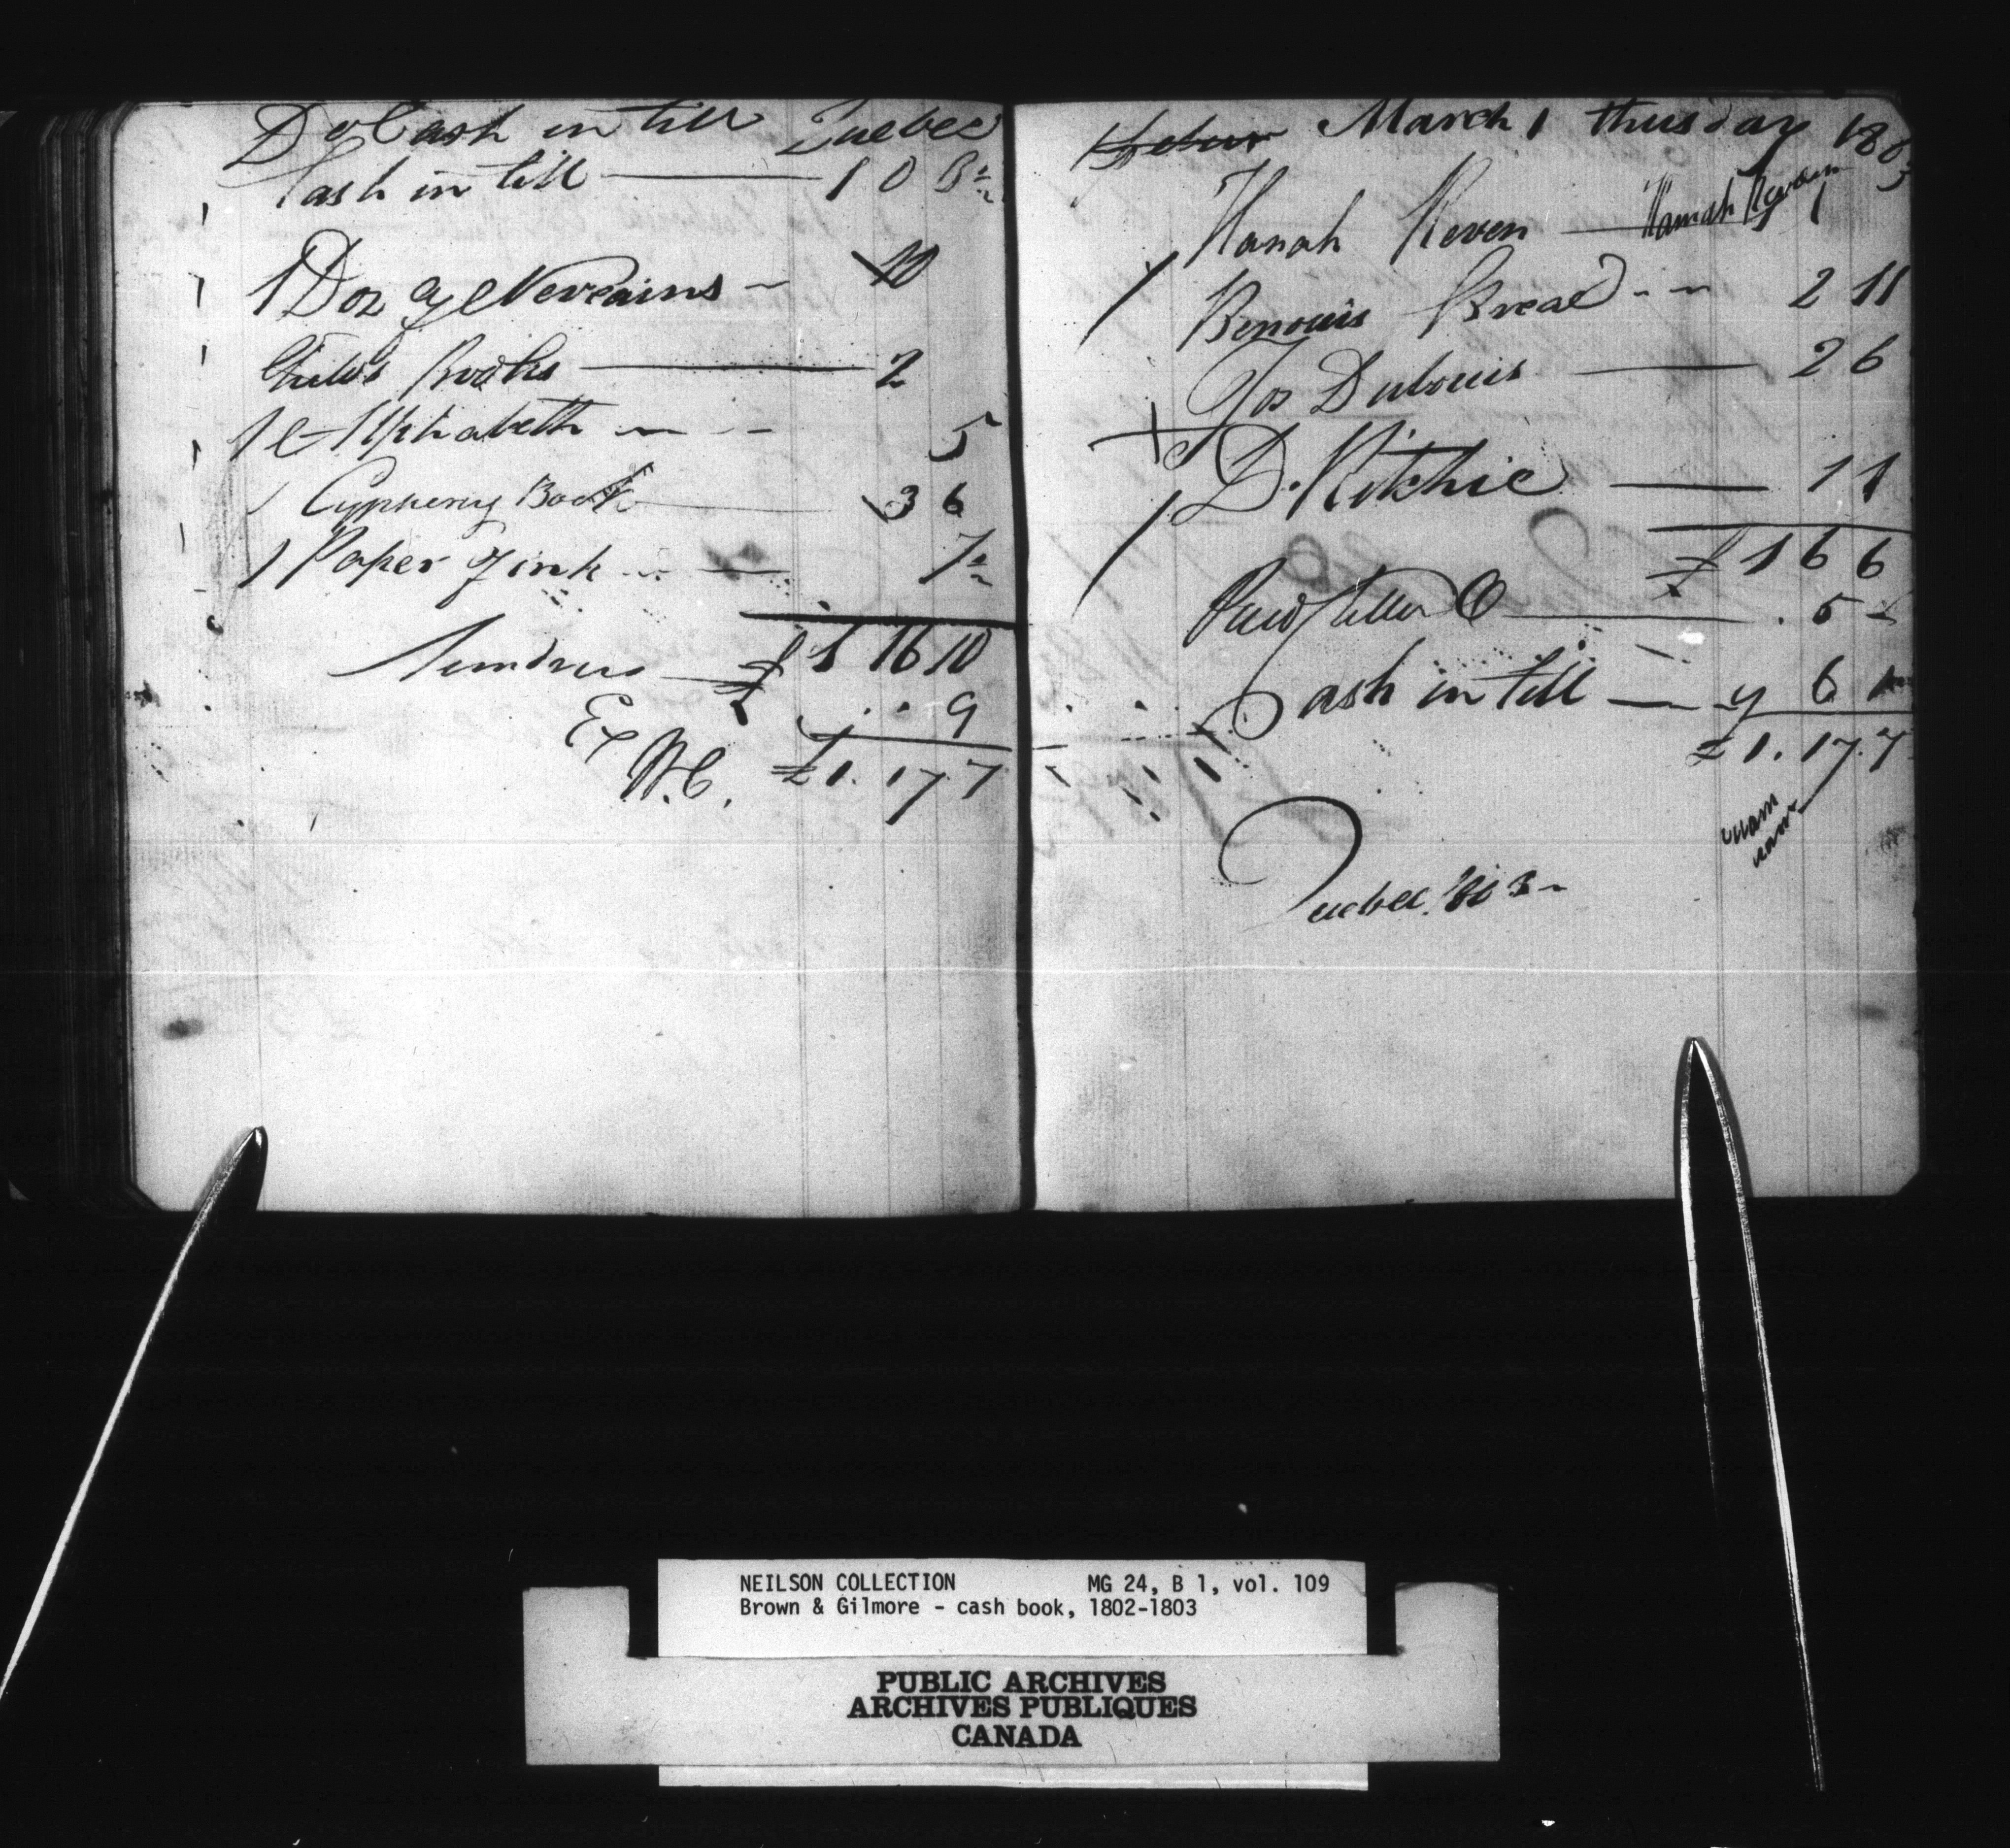 Do Cash in till Quebec
Cash in till — 1 0 8½
1 Doz of Neuvains - 10
Childs Books — 2
1 Alphabeth - - 5
1 Cyphering Book 3 6
1 Paper of ink - - 7½
Sundries £ 1 16 10
9
Ex W.C. £1. 17 7
March 1 thusday 1803
Hanah Keven — Hannah
Benouis Breal - - 2 11
Jos Dubouis — 2 6
D. Ritchie — 1 1
£ 1 6 6
Paid Miller — 5
Cash in till — 6 1
£1. 17. 7
Quebec 1803
NEILSON COLLECTION MG 24, B 1, vol. 109
Brown & Gilmore - cash book, 1802-1803
PUBLIC ARCHIVES
ARCHIVES PUBLIQUES
CANADA